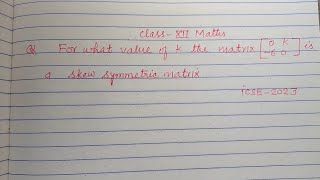 Class - XII Maths
Q For what value of k the matrix [0 k
-6 0] is
a skew symmetric matrix
ICSE-2023